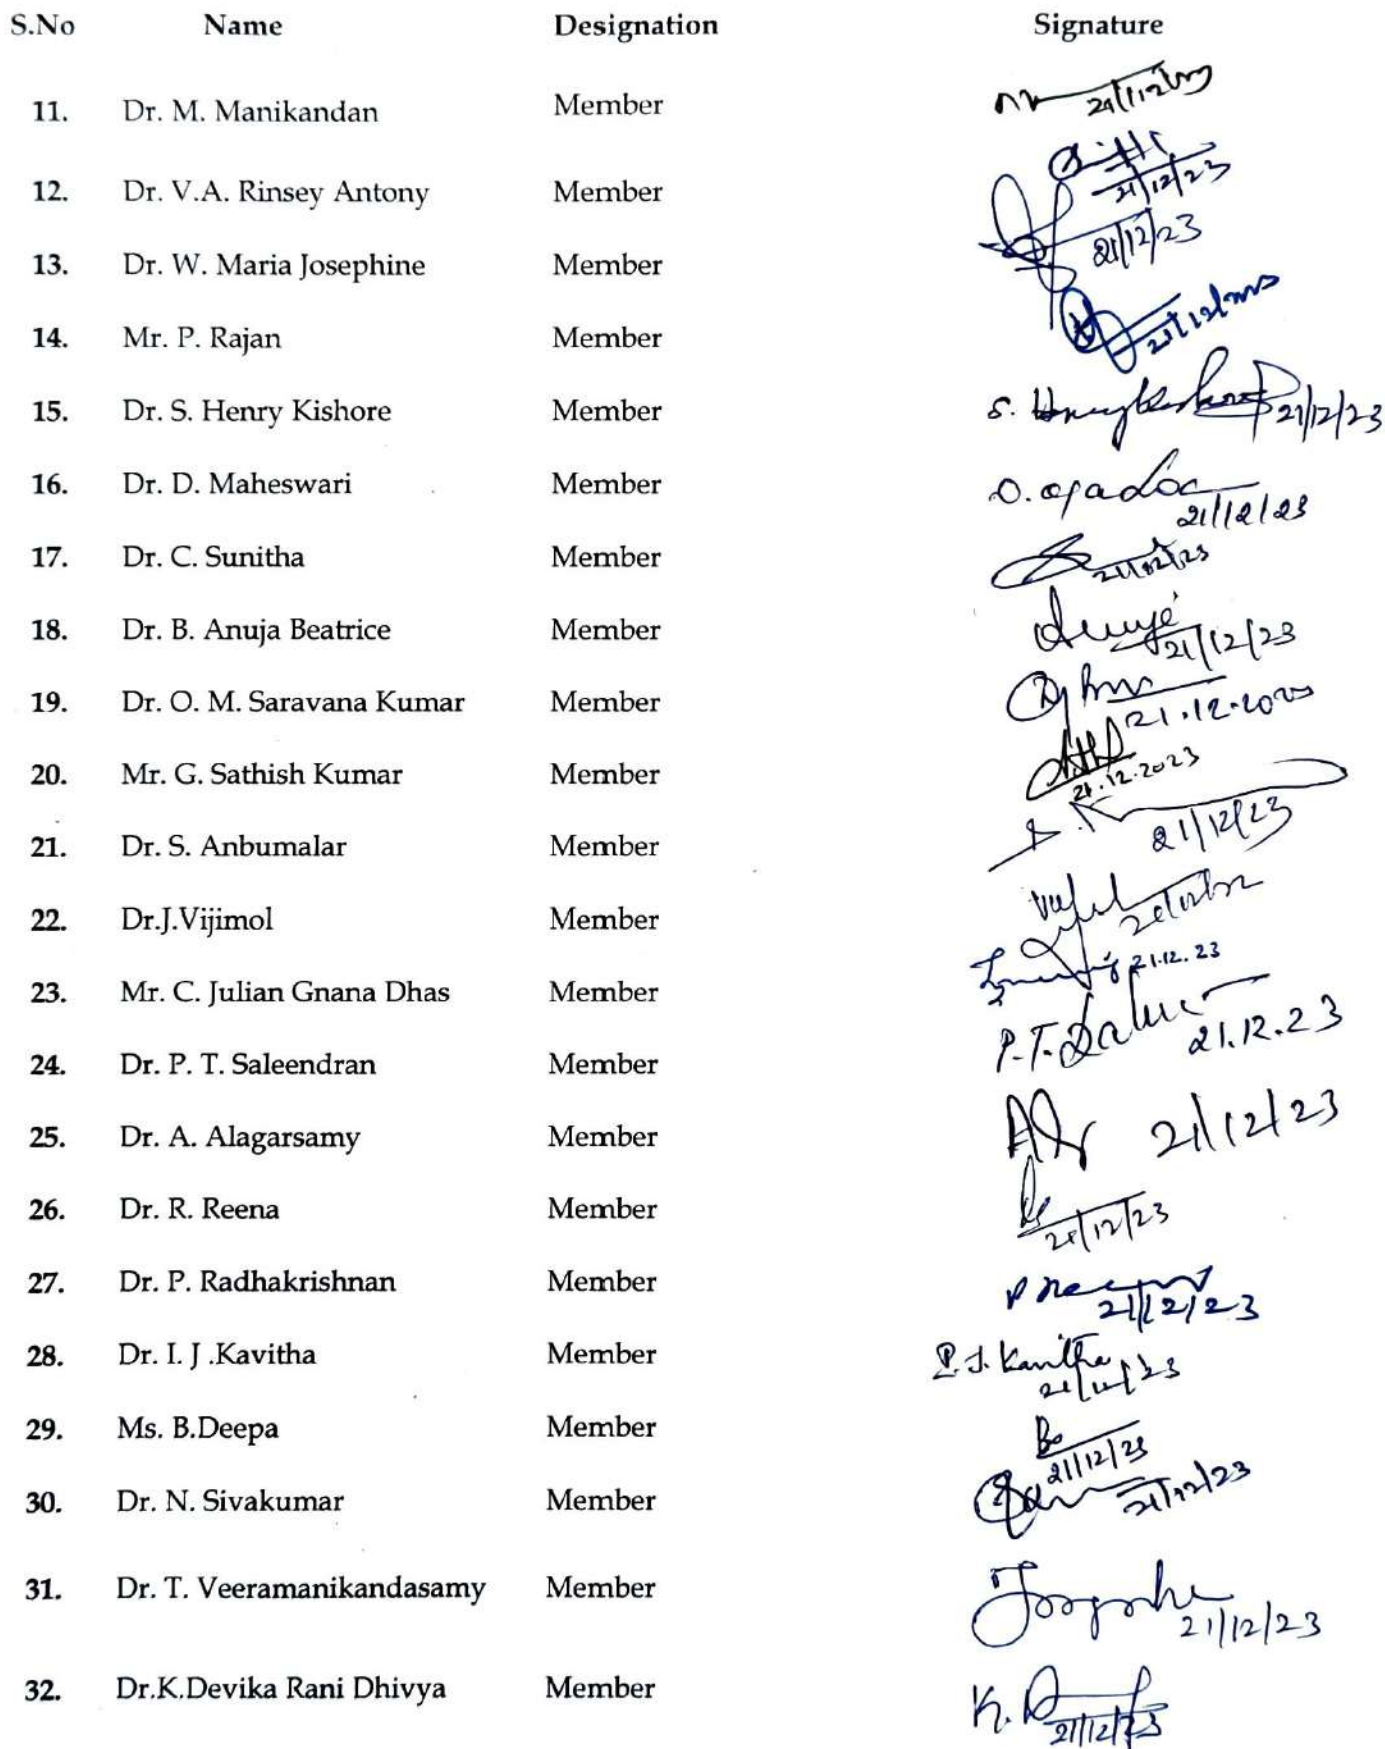 S.No Name Designation Signature
11. Dr. M. Manikandan Member
12. Dr. V.A. Rinsey Antony Member 21/12/23
13. Dr. W. Maria Josephine Member 21/12/23
14. Mr. P. Rajan Member
15. Dr. S. Henry Kishore Member S. Henry Kishore 21/12/23
16. Dr. D. Maheswari Member 21/12/23
17. Dr. C. Sunitha Member 21/12/23
18. Dr. B. Anuja Beatrice Member 21/12/23
19. Dr. O. M. Saravana Kumar Member
20. Mr. G. Sathish Kumar Member 21.12.2023
21. Dr. S. Anbumalar Member 21/12/23
22. Dr.J.Vijimol Member
23. Mr. C. Julian Gnana Dhas Member 21.12.23
24. Dr. P. T. Saleendran Member P.T. 21.12.23
25. Dr. A. Alagarsamy Member 21/12/23
26. Dr. R. Reena Member 21/12/23
27. Dr. P. Radhakrishnan Member 21/12/23
28. Dr. I. J .Kavitha Member I.J. Kavitha 21/12/23
29. Ms. B.Deepa Member 21/12/23
30. Dr. N. Sivakumar Member 21/12/23
31. Dr. T. Veeramanikandasamy Member 21/12/23
32. Dr.K.Devika Rani Dhivya Member K. 21/12/23